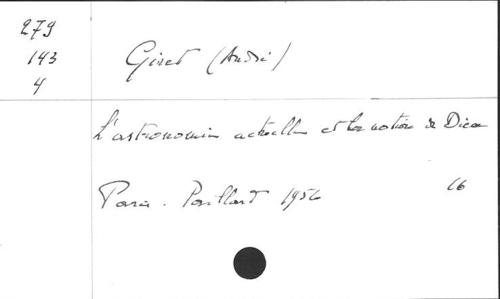 279
143
4
Giret (André)
L'astronomie actuelle et la notion de Dieu
Paris. Paillard 1956
16